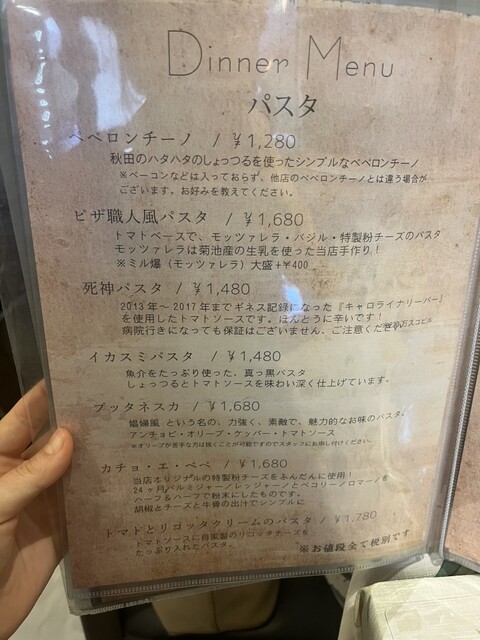 Dinner Menu
パスタ
ペペロンチーノ / ¥1,280
秋田のハタハタのしょっつるを使ったシンプルなペペロンチーノ
※ベーコンなどは入っておらず、他店のペペロンチーノとは違う場合が
ございます。お好みを教えてください。
ピザ職人風パスタ / ¥1,680
トマトベースで、モッツァレラ・バジル・特製粉チーズのパスタ
モッツァレラは菊池産の生乳を使った当店手作り！
※ミル爆（モッツァレラ）大盛+¥400
死神パスタ / ¥1,480
2013年～2017年までギネス記録になった『キャロライナリーパー』
を使用したトマトソースです。ほんとうに辛いです！
病院行きになっても保証はございません、ご注意ください
イカスミパスタ / ¥1,480
魚介をたっぷり使った、真っ黒パスタ
しょっつるとトマトソースを味わい深く仕上げています。
プッタネスカ / ¥1,680
娼婦風 という名の、力強く、素敵で、魅力的なお味のパスタ。
アンチョビ・オリーブ・ケッパー・トマトソース
※オリーブが苦手な方は抜くことが可能ですのでスタッフにお申し付けください。
カチョ・エ・ペペ / ¥1,680
当店オリジナルの特製粉チーズをふんだんに使用！
24ヶ月パルミジャーノレッジャーノとペコリーノロマーノを
ハーフ＆ハーフで粉末にしたものです。
胡椒とチーズと牛骨の出汁でシンプルに
トマトとリコッタクリームのパスタ / ¥1,780
トマトソースに自家製のリコッタチーズを
たっぷり入れたパスタ。
※お値段全て税別です